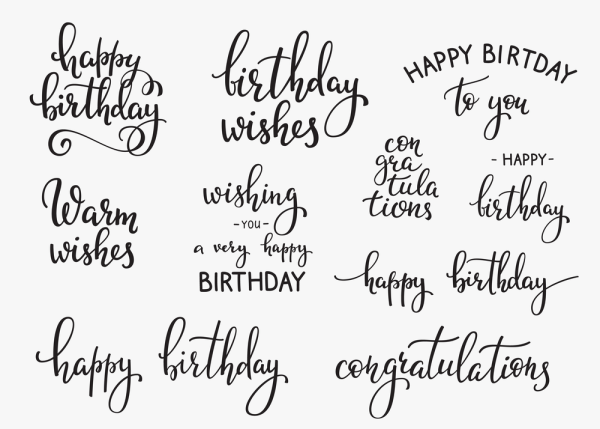 happy
birthday
birthday
wishes
HAPPY BIRTDAY
to you
con
gra
tula
tions
- HAPPY-
birthday
Warm
wishes
wishing
-YOU-
a very happy
BIRTHDAY
happy birthday
happy birthday
congratulations